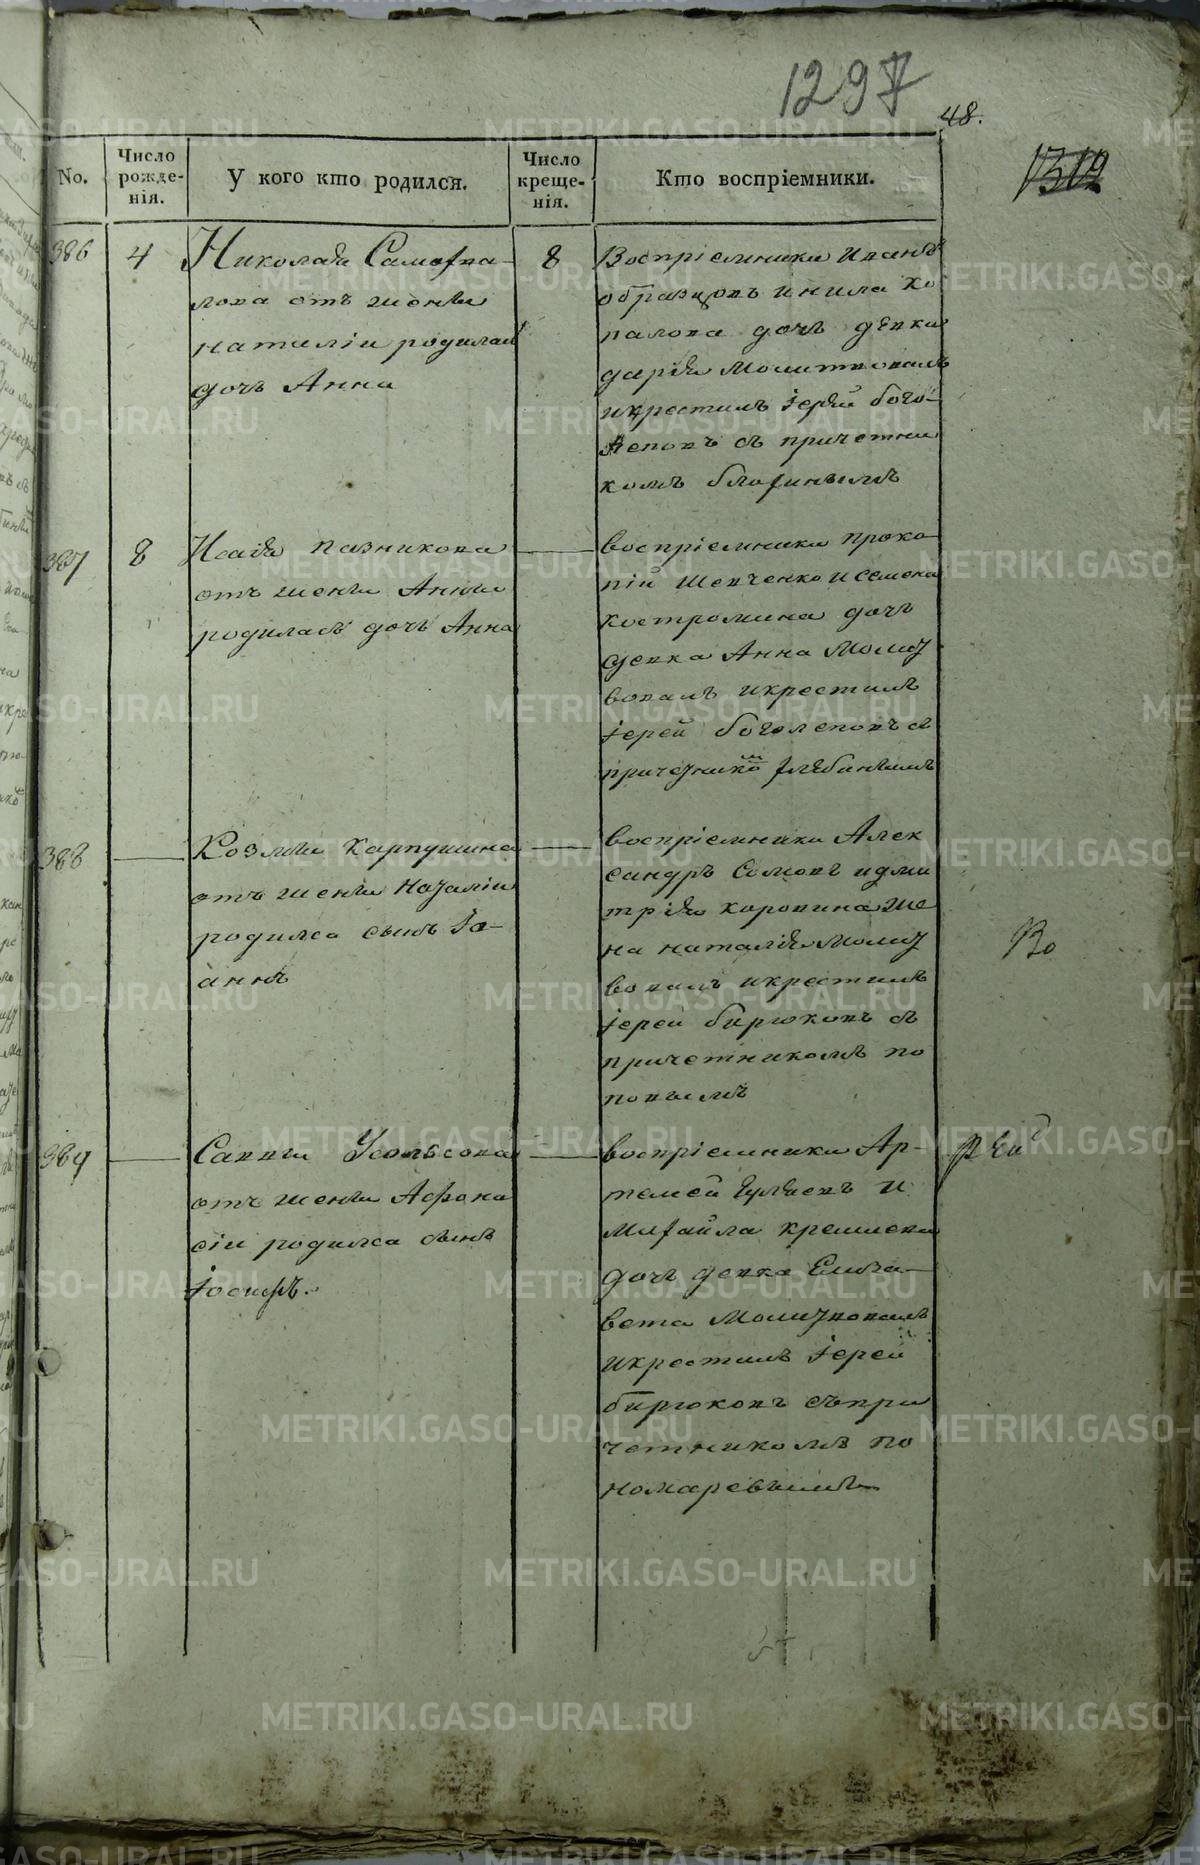 1297
48.
1312
No.
Число рожде-нія.
У кого кто родился.
Число креще-нія.
Кто воспріемники.
386
4
Николая Самохва-
лова отъ жены
наталіи родилась
дочь Анна
8
Воспріемники иванъ
образцовъ и нила ко
палова дочь девка
дарія Молитвовалъ
и крестилъ іерей бого-
леповъ съ причетни
комъ
387
8
Исаія пазникова
отъ жены Анны
родилась дочь Анна
воспріемники проко-
пій шевченко и семена
костромина дочь
девка Анна Молит
вовалъ и крестилъ
іерей боголеповъ съ
причетникомъ
388
Козмы Карпушина
отъ жены Наталіи
родился сынъ Іо-
аннъ
воспріемники Алек
сандръ Сомовъ и дми
трія коровина же
на наталія Молит
вовалъ и крестилъ
іерей бирюковъ съ
причетникомъ по
повымъ
389
Саввы Усольсова
отъ жены Афона
сіи родился сынъ
Іосифъ.
воспріемники Ар-
темей и
Михайла
дочь девка Елиза-
вета Молитвовалъ
и крестилъ іерей
бирюковъ съ при
четникомъ по
номаревымъ
Во
рей
METRIKI.GASO-URAL.RU